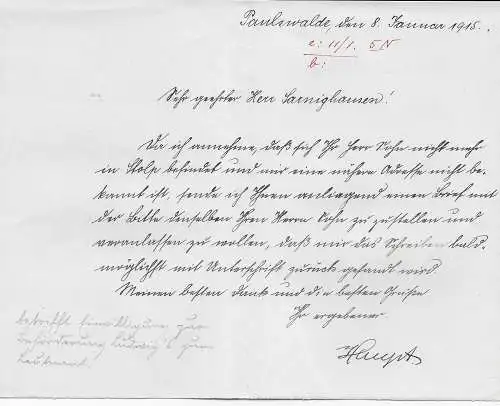 Paulswalde, den 8. Januar 1915.
e: 11/1. SN
b:
Sehr geehrter Herr Sarnighausen!
Da ich annehme, daß sich Ihr Herr Sohn nicht mehr
in Stolp befindet und mir eine nähere Adresse nicht be-
kannt ist, sende ich Ihnen anliegend einen Brief mit
der Bitte denselben Ihrem Herrn Sohn zuzustellen und
veranlassen zu wollen, daß mir das Schreiben bald-
möglichst mit Unterschrift zurück gesandt wird.
Meinen besten Dank und die besten Grüße
Ihr ergebener
Haupt
betrifft Einwilligung zur
Beförderung Ludwig's zum
Leutnant!